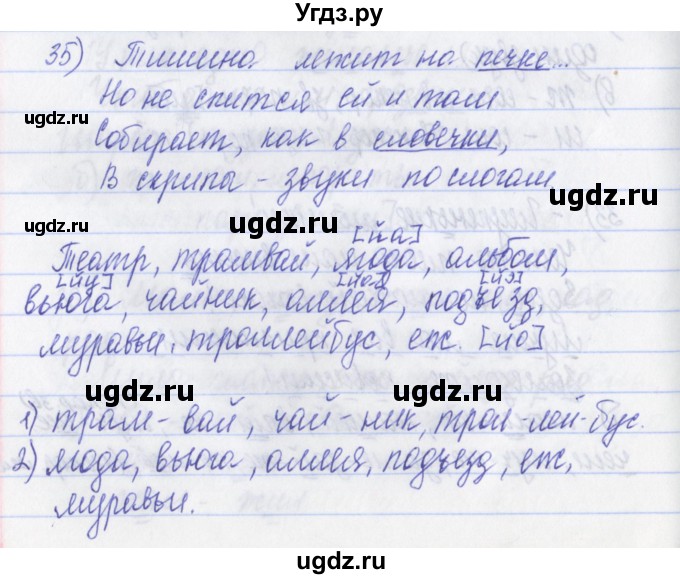 Угдз.ру
35) Тишина лежит на печке...
Но не спится ей и там
ugdz.ru
Собирает, как в словечки,
ugdz.ru
В скрипы - звуки по слогам
ugdz.ru
ugdz.ru
[йа]
Театр, трамвай, ягода, альбом,
[йу] [йа] [йэ]
вьюга, чайник, аллея, подъезд,
ugdz.ru
муравьи, троллейбус, еж. [йо]
ugdz.ru
ugdz.ru
1) трам-вай, чай-ник, трол-лей-бус.
2) ягода, вьюга, аллея, подъезд, еж,
муравьи.
ugdz.ru
ugdz.ru